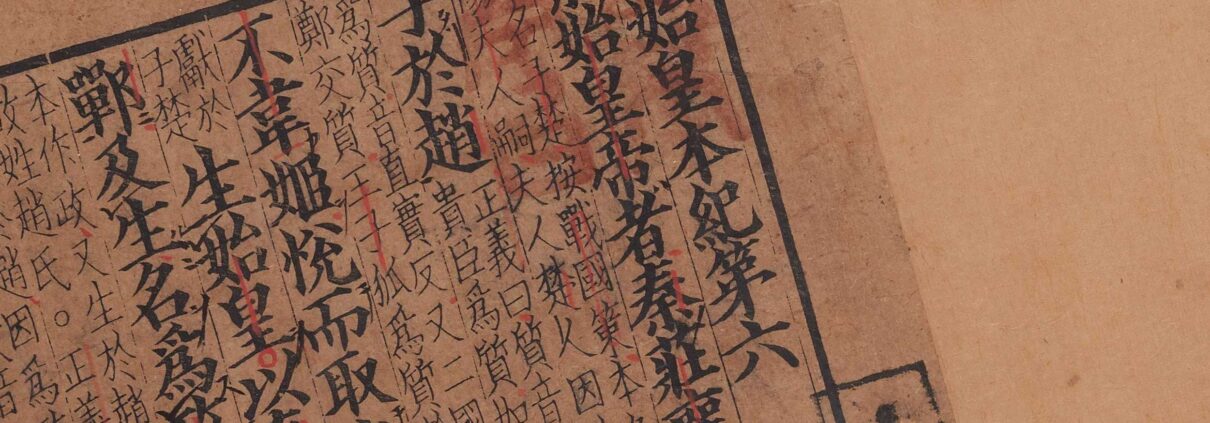 始皇本紀第六
始皇帝者秦莊襄
名子楚按戰國策本
夫人嗣夫人楚人因
子於趙
正義曰質音
貴臣爲質如
爲質音直實反又二國
鄭交質王子狐爲質
不韋姬悅而取
獻於
子楚
生始皇以
鄲及生名爲
本作政又生於趙
故姓趙氏。正義
趙因爲